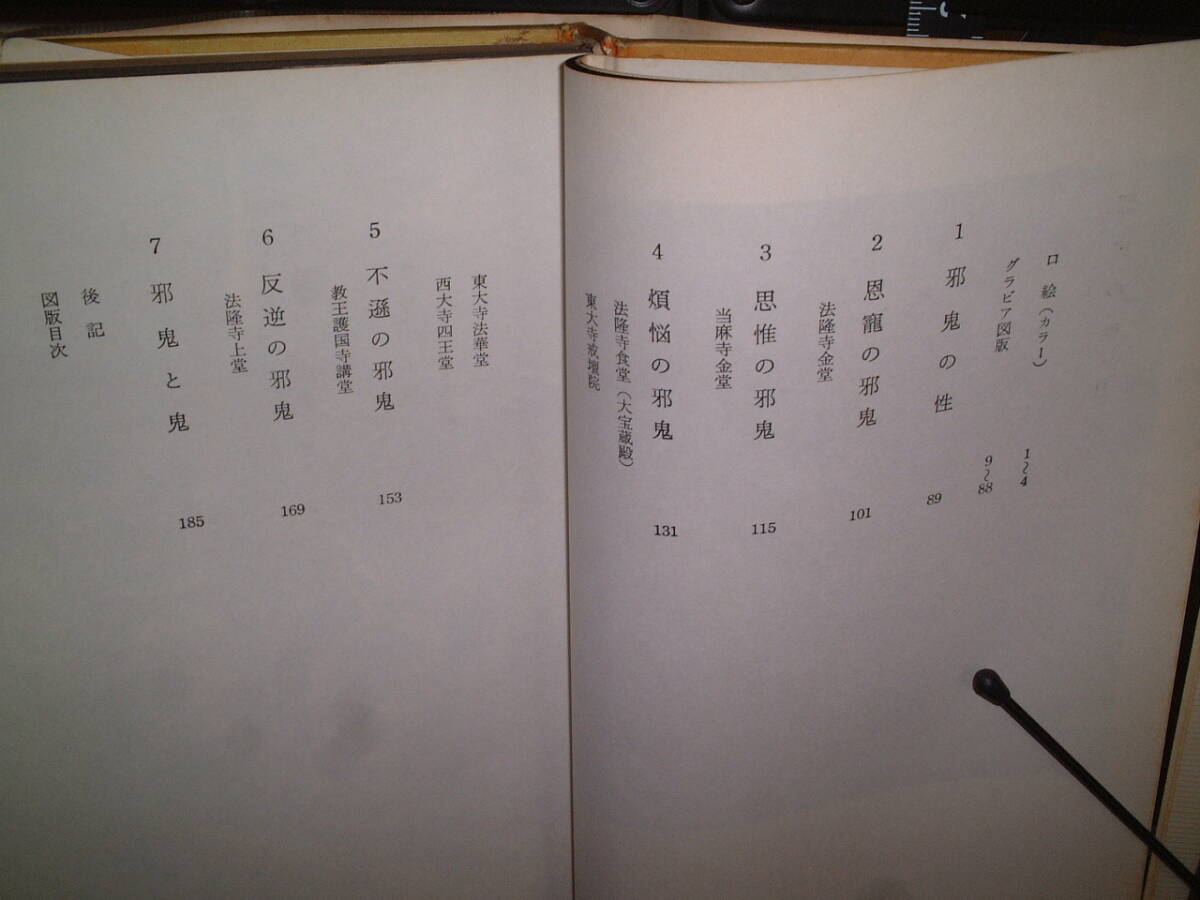 口絵（カラー） 1〜4
グラビア図版 9〜88
1 邪鬼の性 89
2 恩寵の邪鬼 101
法隆寺金堂
3 思惟の邪鬼 115
当麻寺金堂
4 煩悩の邪鬼 131
法隆寺食堂（大宝蔵殿）
東大寺戒壇院
東大寺法華堂
西大寺四王堂
5 不遜の邪鬼 153
教王護国寺講堂
6 反逆の邪鬼 169
法隆寺上堂
7 邪鬼と鬼 185
後記
図版目次